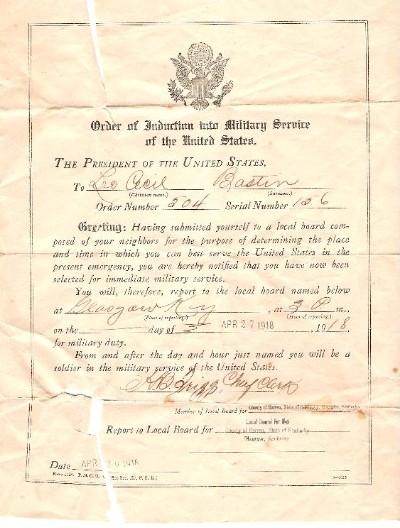 Order of Induction into Military Service
of the United States.
THE PRESIDENT OF THE UNITED STATES,
To Leo Cecil Bastin
(Christian name) (Surname)
Order Number 504 Serial Number 126
Greeting: Having submitted yourself to a local board com-
posed of your neighbors for the purpose of determining the place
and time in which you can best serve the United States in
the present emergency, you are hereby notified that you have now been
selected for immediate military service.
You will, therefore, report to the local board named below
at Glasgow Ky, at 3 P m.,
(Place of reporting) (Hour of reporting)
on the day of APR 27 1918, 1918,
for military duty.
From and after the day and hour just named you will be a
soldier in the military service of the United States.
Member of Local Board for County of Barren, State of Kentucky, Glasgow, Kentucky
Report to Local Board for Local Board For the
County of Barren, State of Kentucky
Glasgow, Kentucky
Date APR 1918